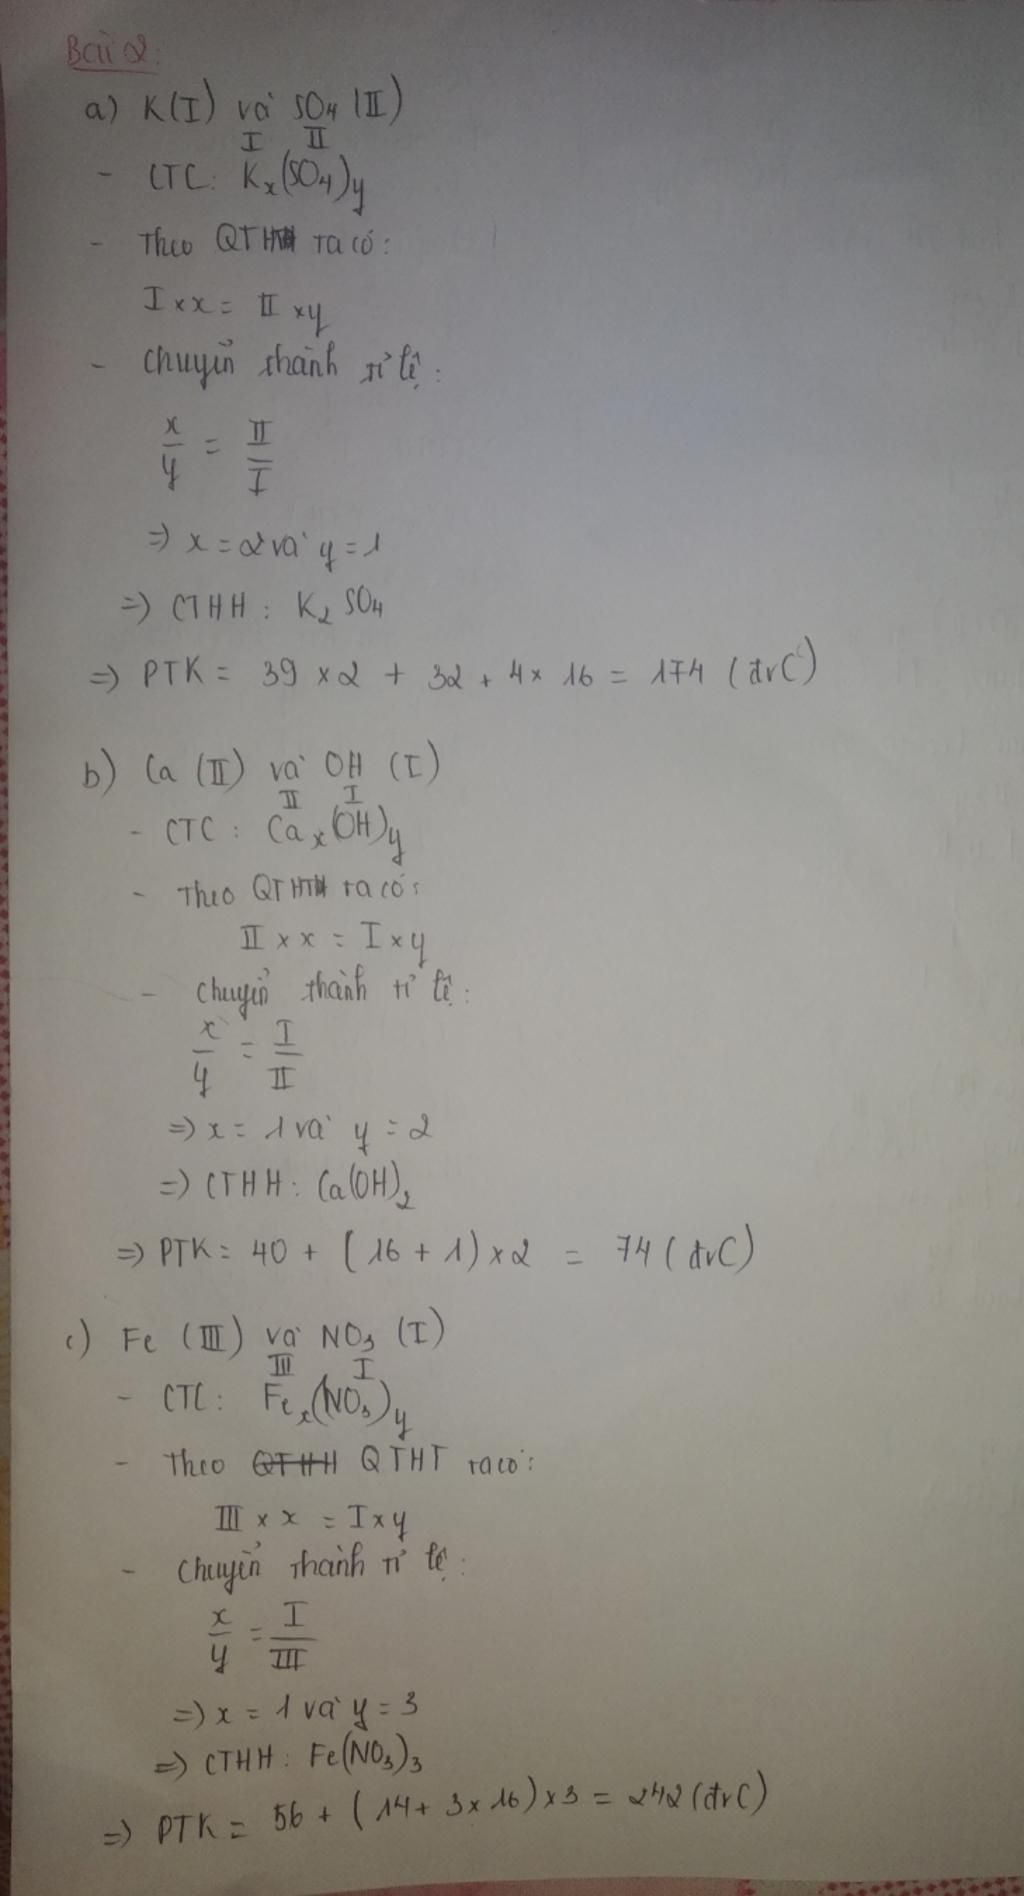 Bài 2:
a) K(I) và SO4 (II)
I II
- CTC: Kx(SO4)y
- Theo QTHT ta có:
I × x = II × y
- Chuyển thành tỉ lệ:
x/y = II/I
=> x = 2 và y = 1
=> CTHH: K2SO4
=> PTK = 39 × 2 + 32 + 4 × 16 = 174 (đvC)
b) Ca (II) và OH (I)
II I
- CTC: Cax(OH)y
- Theo QTHT ta có:
II × x = I × y
- Chuyển thành tỉ lệ:
x/y = I/II
=> x = 1 và y = 2
=> CTHH: Ca(OH)2
=> PTK = 40 + (16 + 1) × 2 = 74 (đvC)
c) Fe (III) và NO3 (I)
III I
- CTC: Fex(NO3)y
- Theo QTHH QTHT ta có:
III × x = I × y
- Chuyển thành tỉ lệ:
x/y = I/III
=> x = 1 và y = 3
=> CTHH: Fe(NO3)3
=> PTK = 56 + (14 + 3 × 16) × 3 = 242 (đvC)